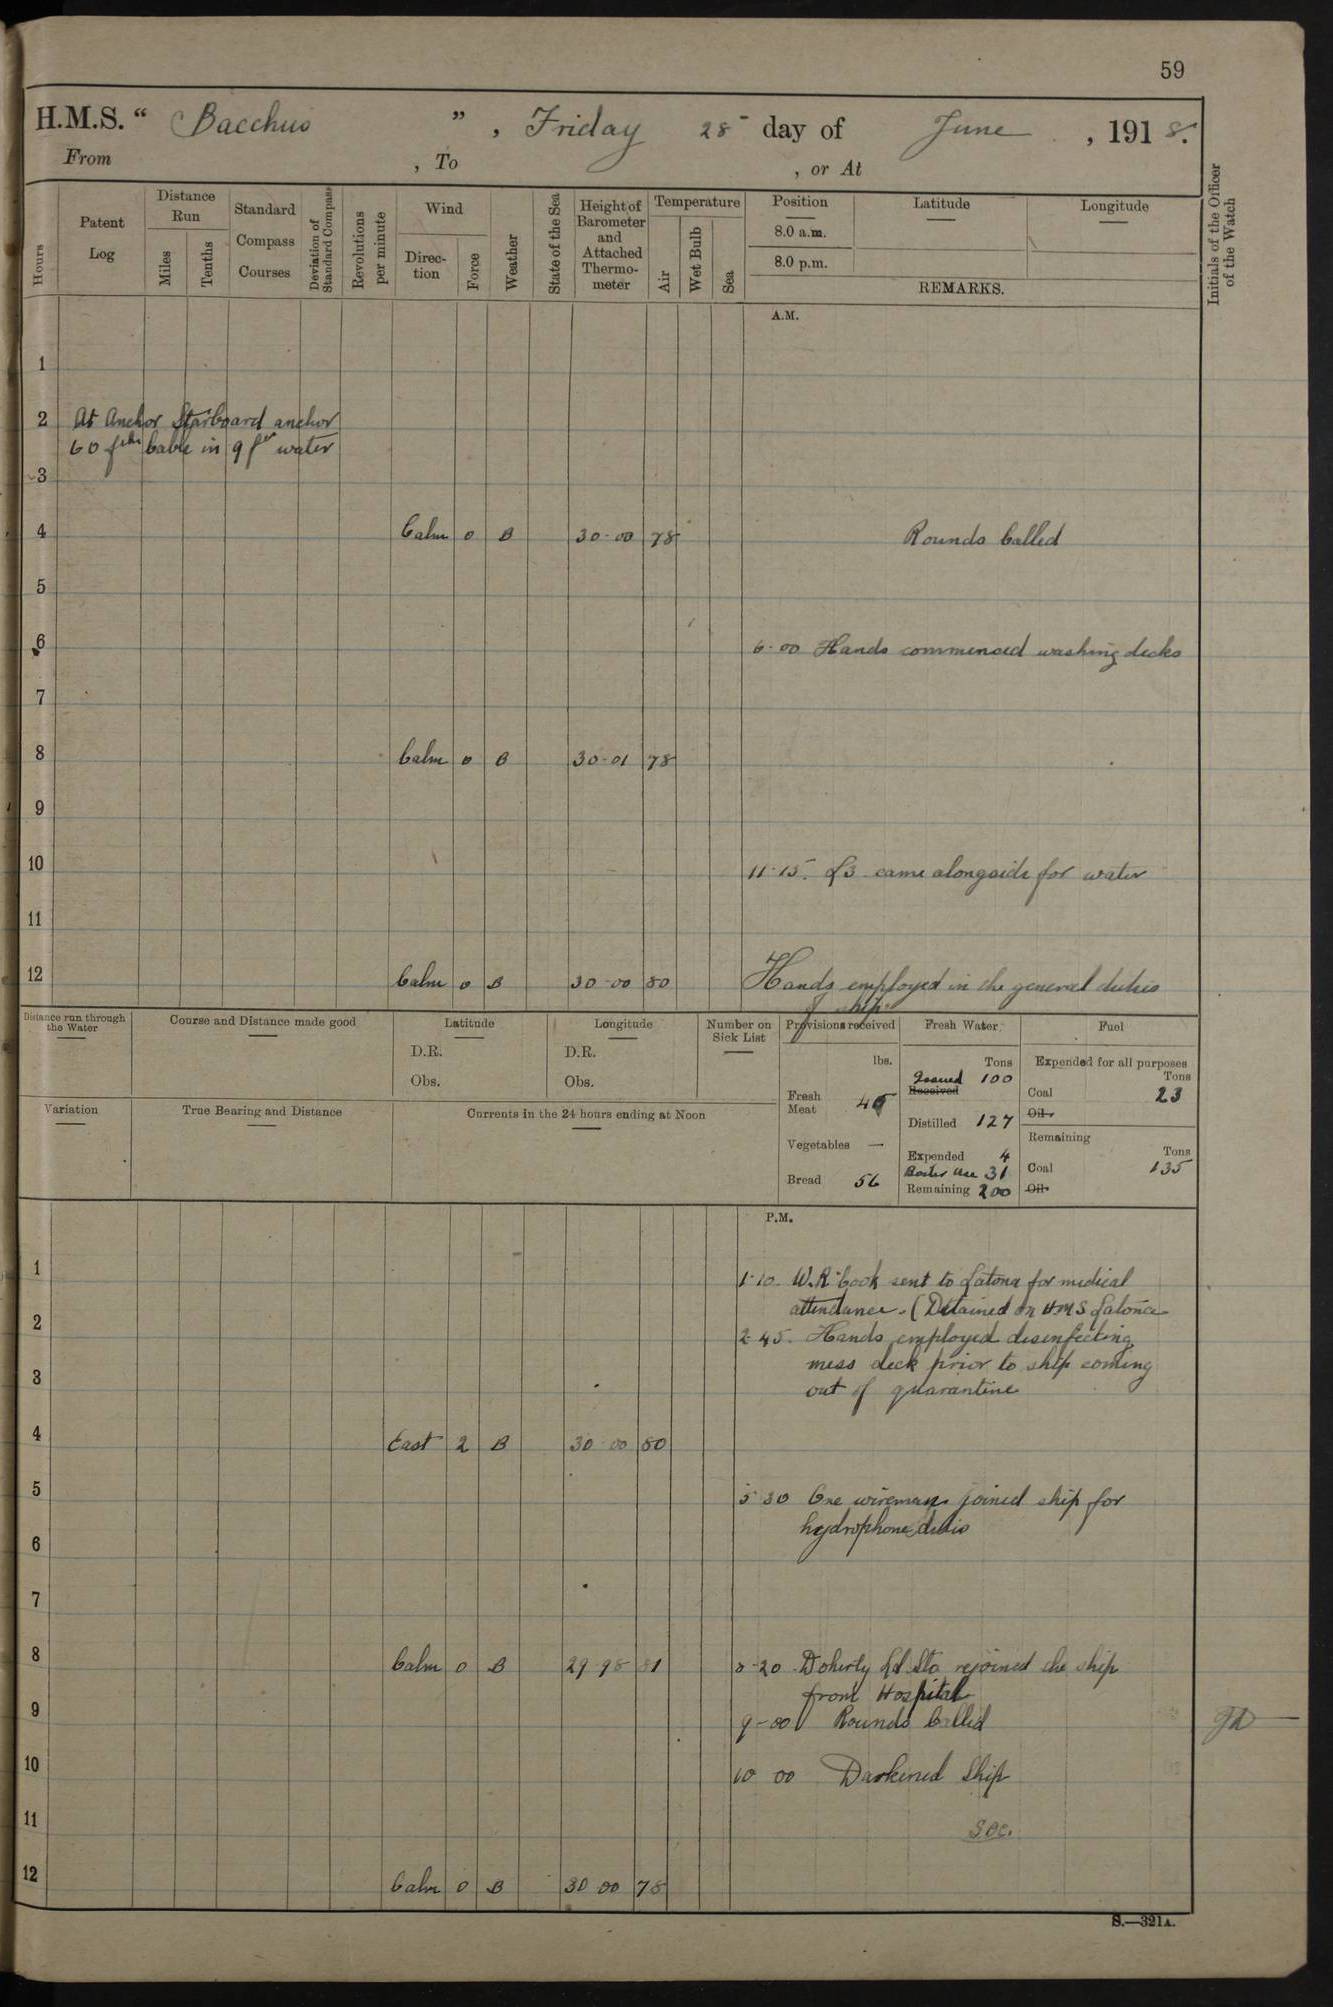 59
H.M.S. " Bacchus ", Friday 28 day of June, 1918.
From , To , or At
Hours
Patent Log
Distance Run
Miles
Tenths
Standard Compass Courses
Deviation of Standard Compass
Revolutions per minute
Wind
Direction
Force
Weather
State of the Sea
Height of Barometer and Attached Thermometer
Temperature
Air
Wet Bulb
Sea
Position
8.0 a.m.
8.0 p.m.
Latitude
Longitude
REMARKS.
Initials of the Officer of the Watch
A.M.
1
2 At Anchor Starboard anchor
60 fths Cable in 9 fm water
3
4 Calm 0 B 30.00 78 Rounds Called
5
6 6.00 Hands commenced washing decks
7
8 Calm 0 B 30.01 78
9
10 11.15. L3 came alongside for water
11
12 Calm 0 B 30.00 80 Hands employed in the general duties
of ship.
Distance run through the Water
Course and Distance made good
Latitude
D.R.
Obs.
Longitude
D.R.
Obs.
Number on Sick List
Provisions received
lbs.
Fresh Meat 45
Vegetables —
Bread 56
Fresh Water
Tons
Issued 100
Received
Distilled 127
Expended 4
Boiler Use 31
Remaining 200
Fuel
Expended for all purposes
Tons
Coal 23
Oil
Remaining
Tons
Coal 135
Oil
Variation
True Bearing and Distance
Currents in the 24 hours ending at Noon
P.M.
1 1.10. W.R. Cook sent to Latona for medical
attendance. (Detained on HMS Latona
2 2.45. Hands employed desenfecting
mess deck prior to ship coming
3 out of quarantine
4 East 2 B 30.00 80
5 5 30 One wireman joined ship for
hydrophone duties
6
7
8 Calm 0 B 29.98 81 8-20 Doherty Ld Sto rejoined the ship
from Hospital
9 9-00 Rounds Called
10 10 00 Darkened Ship
11
12 Calm 0 B 30 00 78
S.—321A.